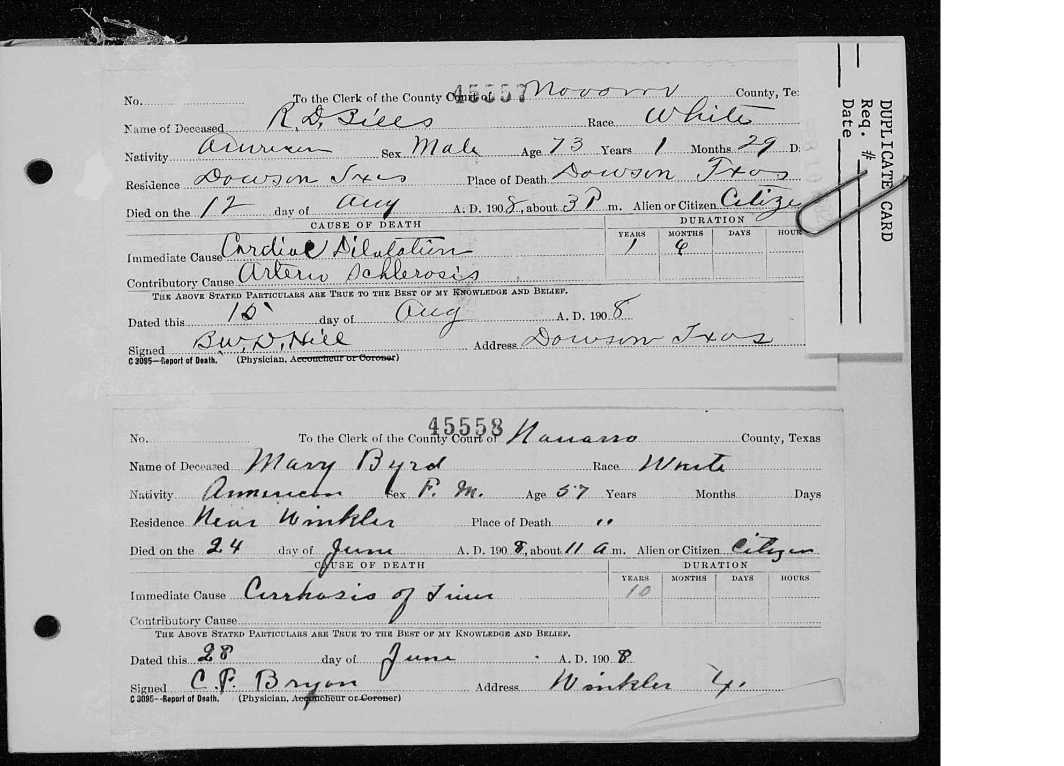 45557
No. To the Clerk of the County Court of Navarro County, Te:
Name of Deceased R. D. Bills Race White
Nativity American Sex Male Age 73 Years 1 Months 29 D:
Residence Dowson Txos Place of Death Dowson Txos
Died on the 12 day of Aug A. D. 1908, about 3 P m. Alien or Citizen Citize
CAUSE OF DEATH DURATION
YEARS MONTHS DAYS HOUR
Immediate Cause Cardiac Dilatation 1 4
Contributory Cause Arterio Schlerosis
THE ABOVE STATED PARTICULARS ARE TRUE TO THE BEST OF MY KNOWLEDGE AND BELIEF.
Dated this 15 day of Aug A. D. 1908
Signed B.W.D. Hill Address Dowson Txos
C 3095—Report of Death. (Physician, Accoucheur or Coroner)
DUPLICATE CARD
Reg. #
Date
45558
No. To the Clerk of the County Court of Navarro County, Texas
Name of Deceased Mary Byrd Race White
Nativity Ammerican Sex F. M. Age 57 Years Months Days
Residence Near Winkler Place of Death "
Died on the 24 day of June A. D. 1908, about 11 a m. Alien or Citizen Citizen
CAUSE OF DEATH DURATION
YEARS MONTHS DAYS HOURS
Immediate Cause Cirrhosis of Liver 10
Contributory Cause
THE ABOVE STATED PARTICULARS ARE TRUE TO THE BEST OF MY KNOWLEDGE AND BELIEF.
Dated this 28 day of June A. D. 1908
Signed C. P. Bryon Address Winkler
C 3095—Report of Death. (Physician, Accoucheur or Coroner)